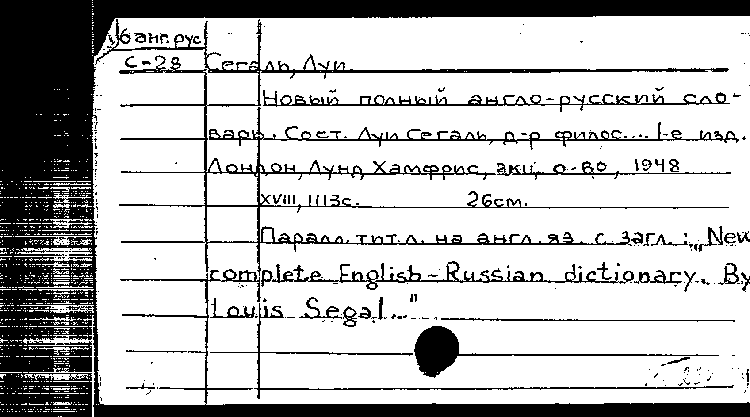 6 анг.рус
С-28 Сегаль, Луи
Новый полный англо-русский сло-
варь. Сост. Луи Сегаль, д-р филос.... 1-е изд.
Лондон, Лунд, Хамфрис, акц. о-во, 1948
XVIII, 1113с. 26см.
Паралл. тит. л. на англ. яз. с загл.: „New
complete English-Russian dictionary. By
Louis Segal..."